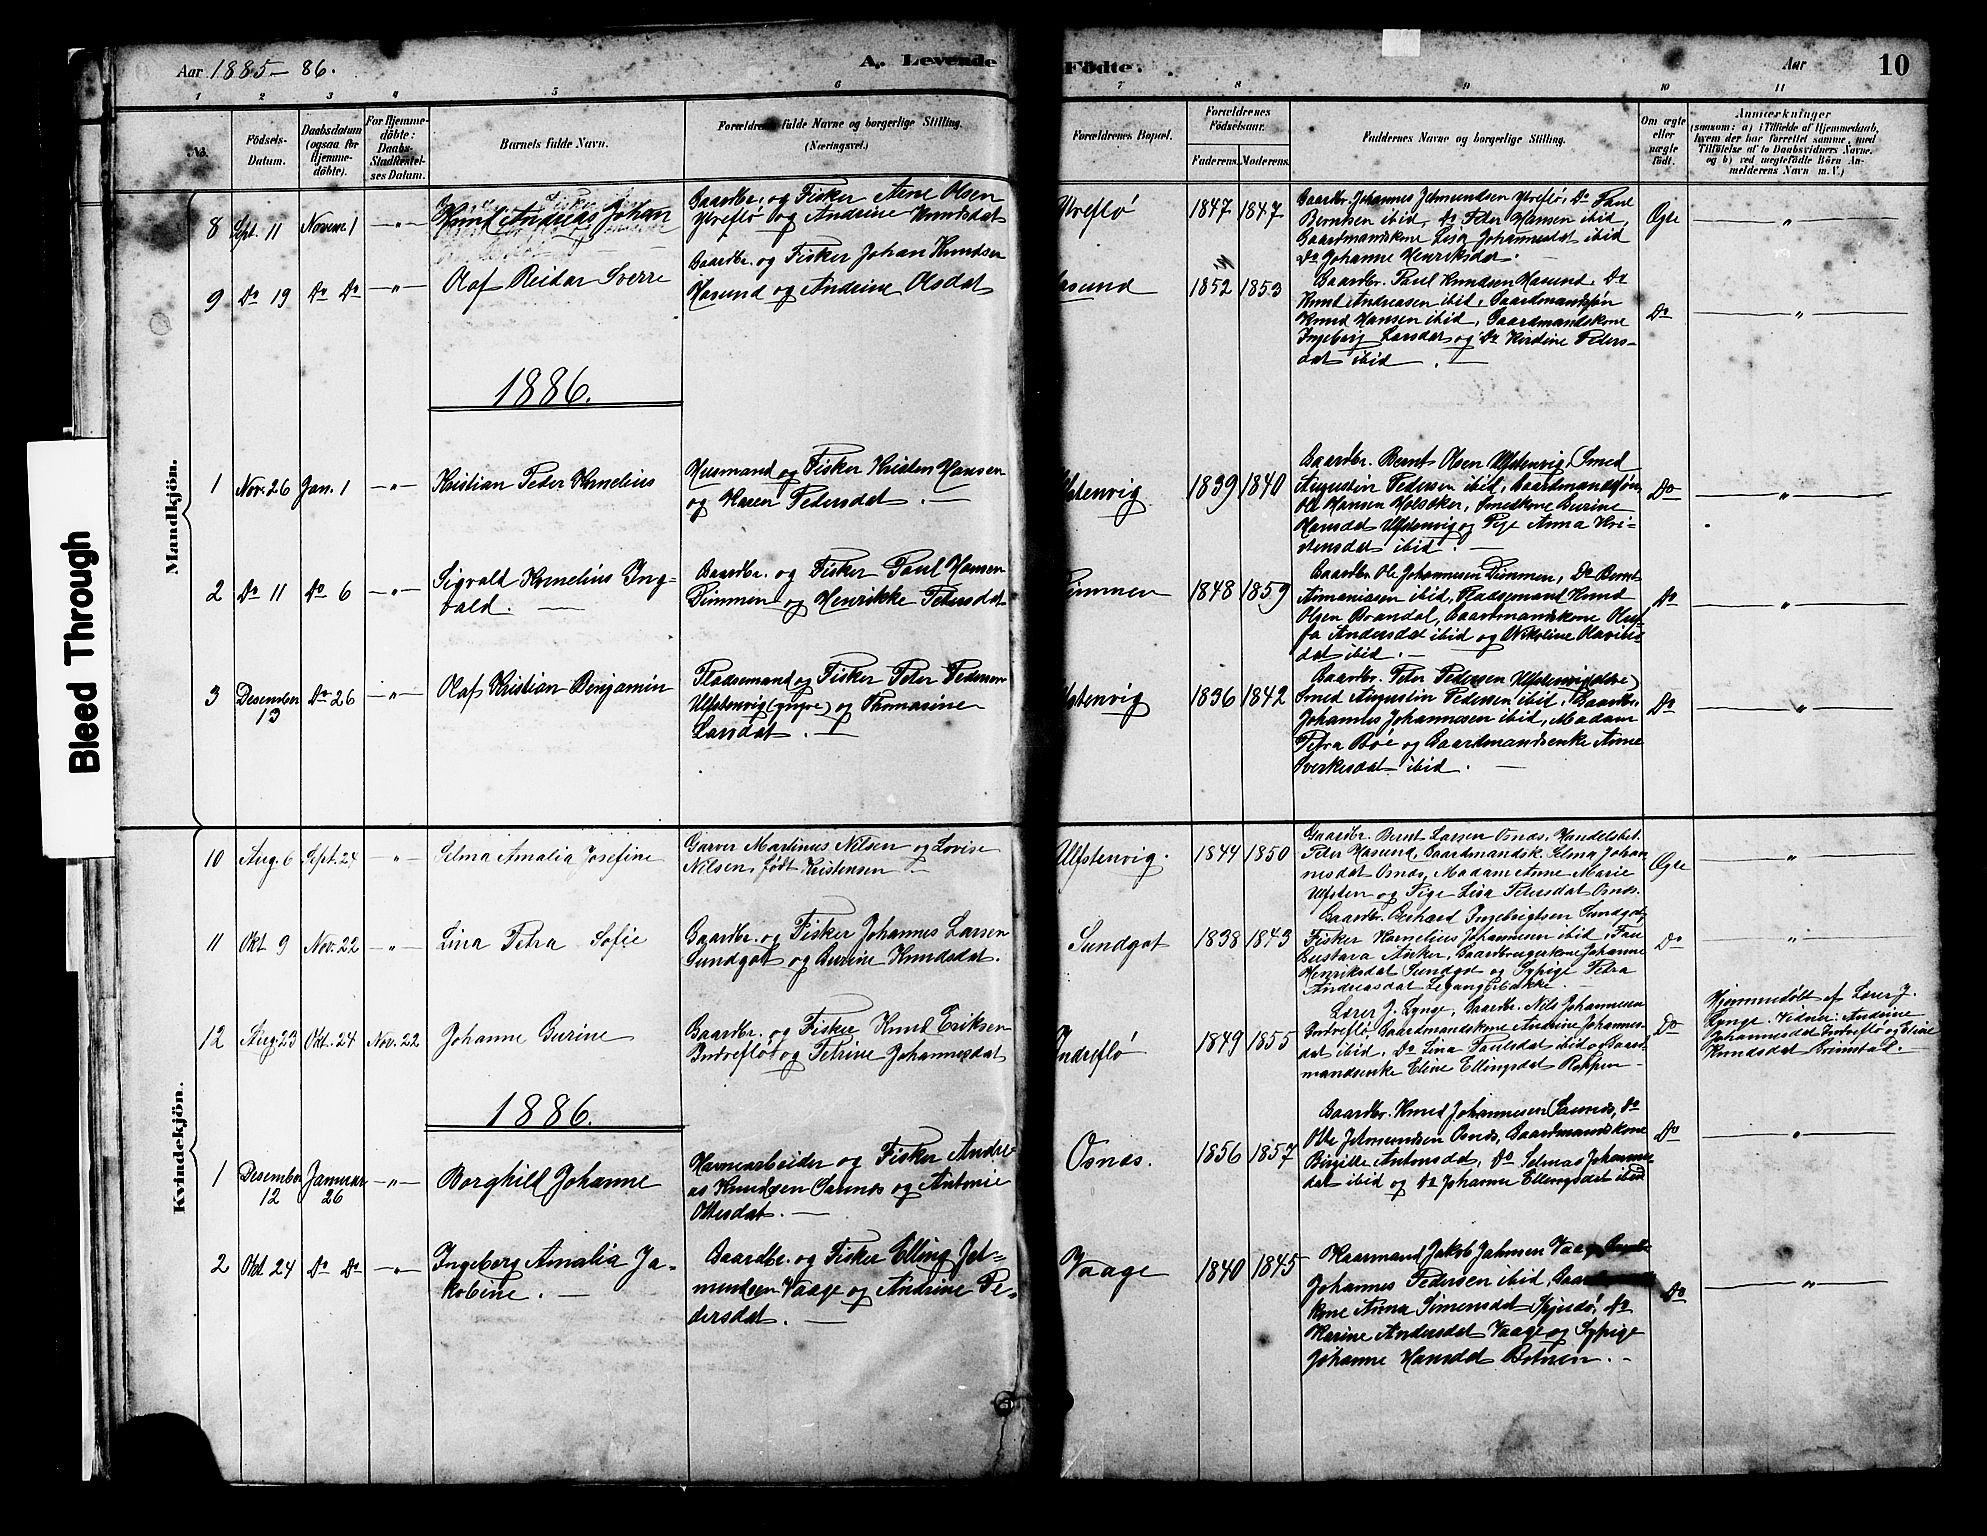 Bleed Through
Aar 1885-86.
A. Levende
Födte.
Aar
10
1 2 3 4 5 6
7 8 9 10 11
No.
Födsels-
Datum.
Daabsdatum
(ogsaa for
Hjemme-
döbte).
For Hjemme-
döbte:
Daabs-
Stadfæstel-
ses Datum.
Barnets fulde Navn.
Forældrenes fulde Navne og borgerlige Stilling.
(Næringsvei.)
Forældrenes Bopæl.
Forældrenes
Födselsaar.
Faderens. Moderens.
Faddernes Navne og borgerlige Stilling.
Om ægte
eller
uægte
født.
Anmærkninger
(saasom: a) i Tilfælde af Hjemmedaab,
hvem der har forrettet samme, med
Tilføielse af to Daabsvidners Navne.
og b) ved uegtefødte Börn An-
melderens Navn m. V.)
Mandkjön.
8 Sept. 11 Novemb 1 — " — Knud Andreas Johan
Gaardbr. og Fisker Arne Olsen
Ytreflö og Andrine Knudsdat
Ytreflö 1847 1847
Gaardbr. Johannes Jetmundsen Ytreflö, Do Paul
Berntsen ibid, Do Peder Hansen ibid,
Gaardmandskone Lisa Johannesdat ibid
Do Johanne Henriksdat.
Ægte — " —
9 Do 19 Do Do — " — Olaf Reidar Sverre
Gaardbr. og Fisker Johan Knudsen
Hasund og Andrine Olsdat
Hasund 1852 1853
Gaardbr. Paul Knudsen Hasund, Do
Knud Andreasen ibid, Gaardmandssøn
Knud Hansen ibid, Gaardmandskone
Ingeborg Larsdat og Do Kirstine Peders-
dat ibid.
Do — " —
1886.
1 Nov. 26 Jan. 1 — " — Kristian Peder Kornelius
Husmand og Fisker Kristen Hansen
og Karen Pedersdat. —
Ulfstenvig 1839 1840
Gaardbr. Bernt Olsen Ulfstenvig, Smed
Augustin Pedersen ibid, Gaardmandssøn
Ole Hansen Holsøker, Smedkone Gurine
Hansdat Ulfstenvig og Pige Anna Kri-
stensdat ibid. —
Do — " —
2 Do 11 Do 6 — " — Sigvald Kornelius Ing-
vald. —
Gaardbr. og Fisker Paul Hansen
Dimmen og Henrikke Petersdat
Dimmen 1848 1859
Gaardbr. Ole Johannesen Dimmen, Do Bernt
Annaniasen ibid, Pladsemand Knud
Olsen Brandal, Gaardmandskone Olu-
fa Andersdat ibid og Nikoline Olavies
dat ibid. —
Do — " —
3 Desember 13 Do 26 — " — Olaf Kristian Benjamin
Pladsemand og Fisker Peter Pedersen
Ulfstenvig (yngre) og Thomasine
Larsdat. —
Ulfstenvig 1836 1842
Gaardbr. Peter Pedersen Ulfstenvig (eldre)
Smed Augustin Pedersen ibid, Gaardbr.
Johannes Johannesen ibid, Madam
Petra Böe og Gaardmandsenke Anne
Sverkesdat ibid. —
Do — " —
Kvindekjön.
10 Aug. 6 Sept. 24 — " — Selma Amalia Josefine
Garver Martinus Nilsen og Lovise
Nilsen, født Kristensen —
Ulfstenvig. 1844 1850
Gaardbr. Bernt Larsen Osnes, Handelsbet.
Peter Hasund, Gaardmandsk. Selma Johan
nesdat Osnæs, Madam Anne Marie
Ulfsten og Pige Lisa Petersdat Osnæs.
Ægte — " —
11 Okt 9 Nov. 22 — " — Lina Petra Sofie
Gaardbr. og Fisker Johannes Larsen
Sundgot og Gurine Knudsdat.
Sundgot 1838 1843
Gaardbr. Gerhard Ingebrigtsen Sundgot,
Fisker Kornelius Johannesen ibid, Frue
Gustava Anker, Gaardbrugerkone Johanne
Henriksdat Sundgot og Sypige Petra
Andreasdat Leganger bakke. —
Do — " —
12 Aug. 23 Okt. 24 Nov. 22 Johanne Gurine
Gaardbr. og Fisker Knud Eriksen
Indreflö og Petrine Johannesdat
Indreflö 1849 1855
Lærer J. Lynge, Gaardbr. Nils Johannesen
Indreflö, Gaardmandskone Andrine Johannes-
dat ibid, Do Lina Paulsdat ibid og Gaard-
mandsenke Eline Ellingsdat Röppen —
Do
Hjemmedöbt af Lærer J.
Lynge. Vidner: Andrine
Johannesdat Indreflö og Eline
Knudsdat Grimstad. —
1886.
1 Desember 12 Januar 26 — " — Borghild Johanne
Havnearbeider og Fisker Andre-
as Knudsen Osnæs og Antonie
Ottesdat. —
Osnæs. 1856 1857
Gaardbr. Knud Johannesen Osnæs, Do
Otte Jetmundsen Osnæs, Gaardmandskone
Birgitte Antonsdat, Do Selma Johannes
dat ibid og Do Johanne Ellingsdat ibid
Do — " —
2 Okt 24 Do Do — " — Ingeborg Amalia Ja-
kobine. —
Gaardbr. og Fisker Elling Jet-
mundsen Vaage og Andrine Pe-
dersdat. —
Vaage 1840 1845
Kaarmand Jakob Jahnsen Vaage,
Johannes Pedersen ibid,
kone Anna Simensdat Skjedö, Do
Karine Andersdat Vaage og Sypige
Johanne Hansdat Botnen. —
Do — " —